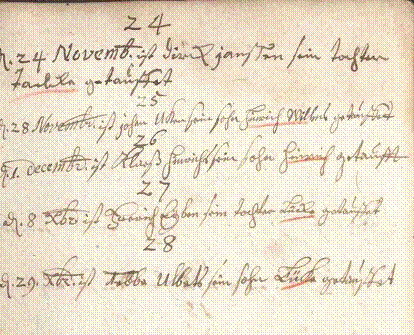 24
d. 24 Novemb. ist Dirck Janssen sein tochter
Taelcke getauffet
25
d. 28 Novembr. ist john Uken sein sohn Hinrich Wilbets getauffet
26
d. 1. decembr. ist Klaess Hinrichs sein sohn Hinrich getaufft
27
d. 8 Xbr. ist sein tochter getauffet
28
d. 29. Xbr. ist Tebbe Ulbets sein sohn getauffet